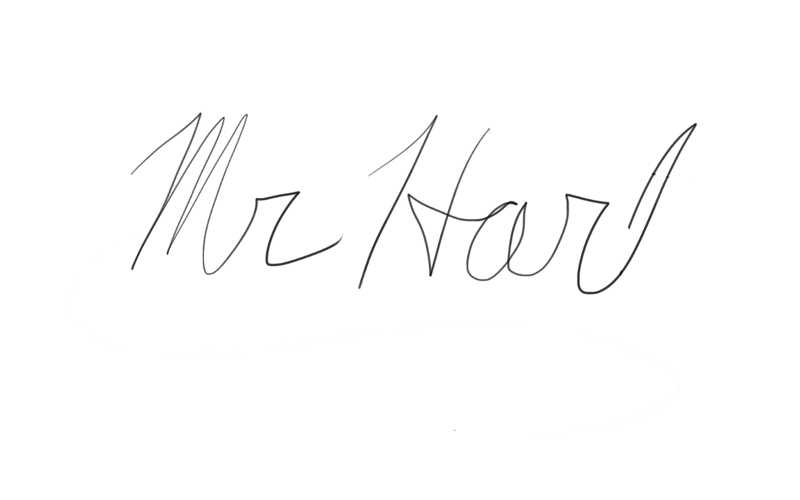 Mr Harl